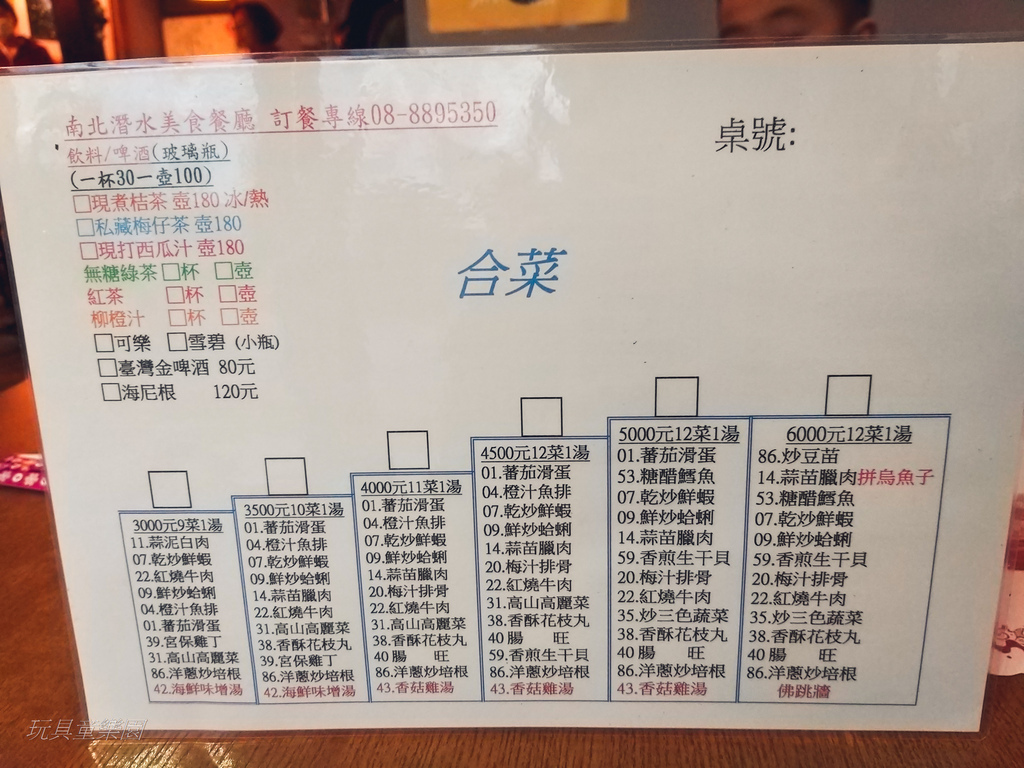 南北潛水美食餐廳 訂餐專線08-8895350
桌號:
飲料/啤酒(玻璃瓶)
(一杯30一壺100)
□現煮桔茶 壺180 冰/熱
□私藏梅仔茶 壺180
□現打西瓜汁 壺180
無糖綠茶 □杯 □壺
紅茶 □杯 □壺
柳橙汁 □杯 □壺
□可樂 □雪碧 (小瓶)
□臺灣金啤酒 80元
□海尼根 120元
合菜
3000元9菜1湯
11.蒜泥白肉
07.乾炒鮮蝦
22.紅燒牛肉
09.鮮炒蛤蜊
04.橙汁魚排
01.蕃茄滑蛋
39.宮保雞丁
31.高山高麗菜
86.洋蔥炒培根
42.海鮮味增湯
3500元10菜1湯
01.蕃茄滑蛋
04.橙汁魚排
07.乾炒鮮蝦
09.鮮炒蛤蜊
14.蒜苗臘肉
22.紅燒牛肉
31.高山高麗菜
38.香酥花枝丸
39.宮保雞丁
86.洋蔥炒培根
42.海鮮味增湯
4000元11菜1湯
01.蕃茄滑蛋
04.橙汁魚排
07.乾炒鮮蝦
09.鮮炒蛤蜊
14.蒜苗臘肉
20.梅汁排骨
22.紅燒牛肉
31.高山高麗菜
38.香酥花枝丸
40腸 旺
86.洋蔥炒培根
43.香菇雞湯
4500元12菜1湯
01.蕃茄滑蛋
04.橙汁魚排
07.乾炒鮮蝦
09.鮮炒蛤蜊
14.蒜苗臘肉
20.梅汁排骨
22.紅燒牛肉
31.高山高麗菜
38.香酥花枝丸
40腸 旺
59.香煎生干貝
86.洋蔥炒培根
43.香菇雞湯
5000元12菜1湯
01.蕃茄滑蛋
53.糖醋鱈魚
07.乾炒鮮蝦
09.鮮炒蛤蜊
14.蒜苗臘肉
59.香煎生干貝
20.梅汁排骨
22.紅燒牛肉
35.炒三色蔬菜
38.香酥花枝丸
40腸 旺
86.洋蔥炒培根
43.香菇雞湯
6000元12菜1湯
86.炒豆苗
14.蒜苗臘肉拼烏魚子
53.糖醋鱈魚
07.乾炒鮮蝦
09.鮮炒蛤蜊
59.香煎生干貝
20.梅汁排骨
22.紅燒牛肉
35.炒三色蔬菜
38.香酥花枝丸
40腸 旺
86.洋蔥炒培根
佛跳牆
玩具童樂園